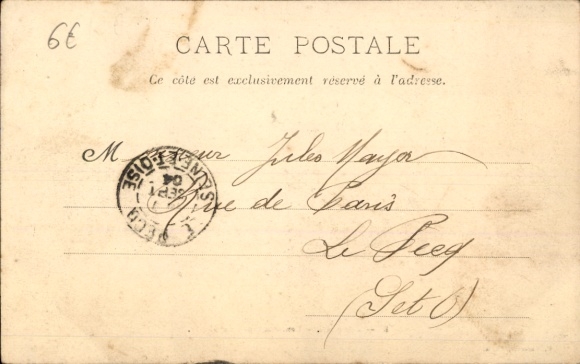 6€
CARTE POSTALE
Ce côté est exclusivement réservé à l'adresse.
Monsieur Jules Mayer
Rue de Paris
Le Pecq
(S et O)
LE PECQ
SEPT
04
SEINE-ET-OISE